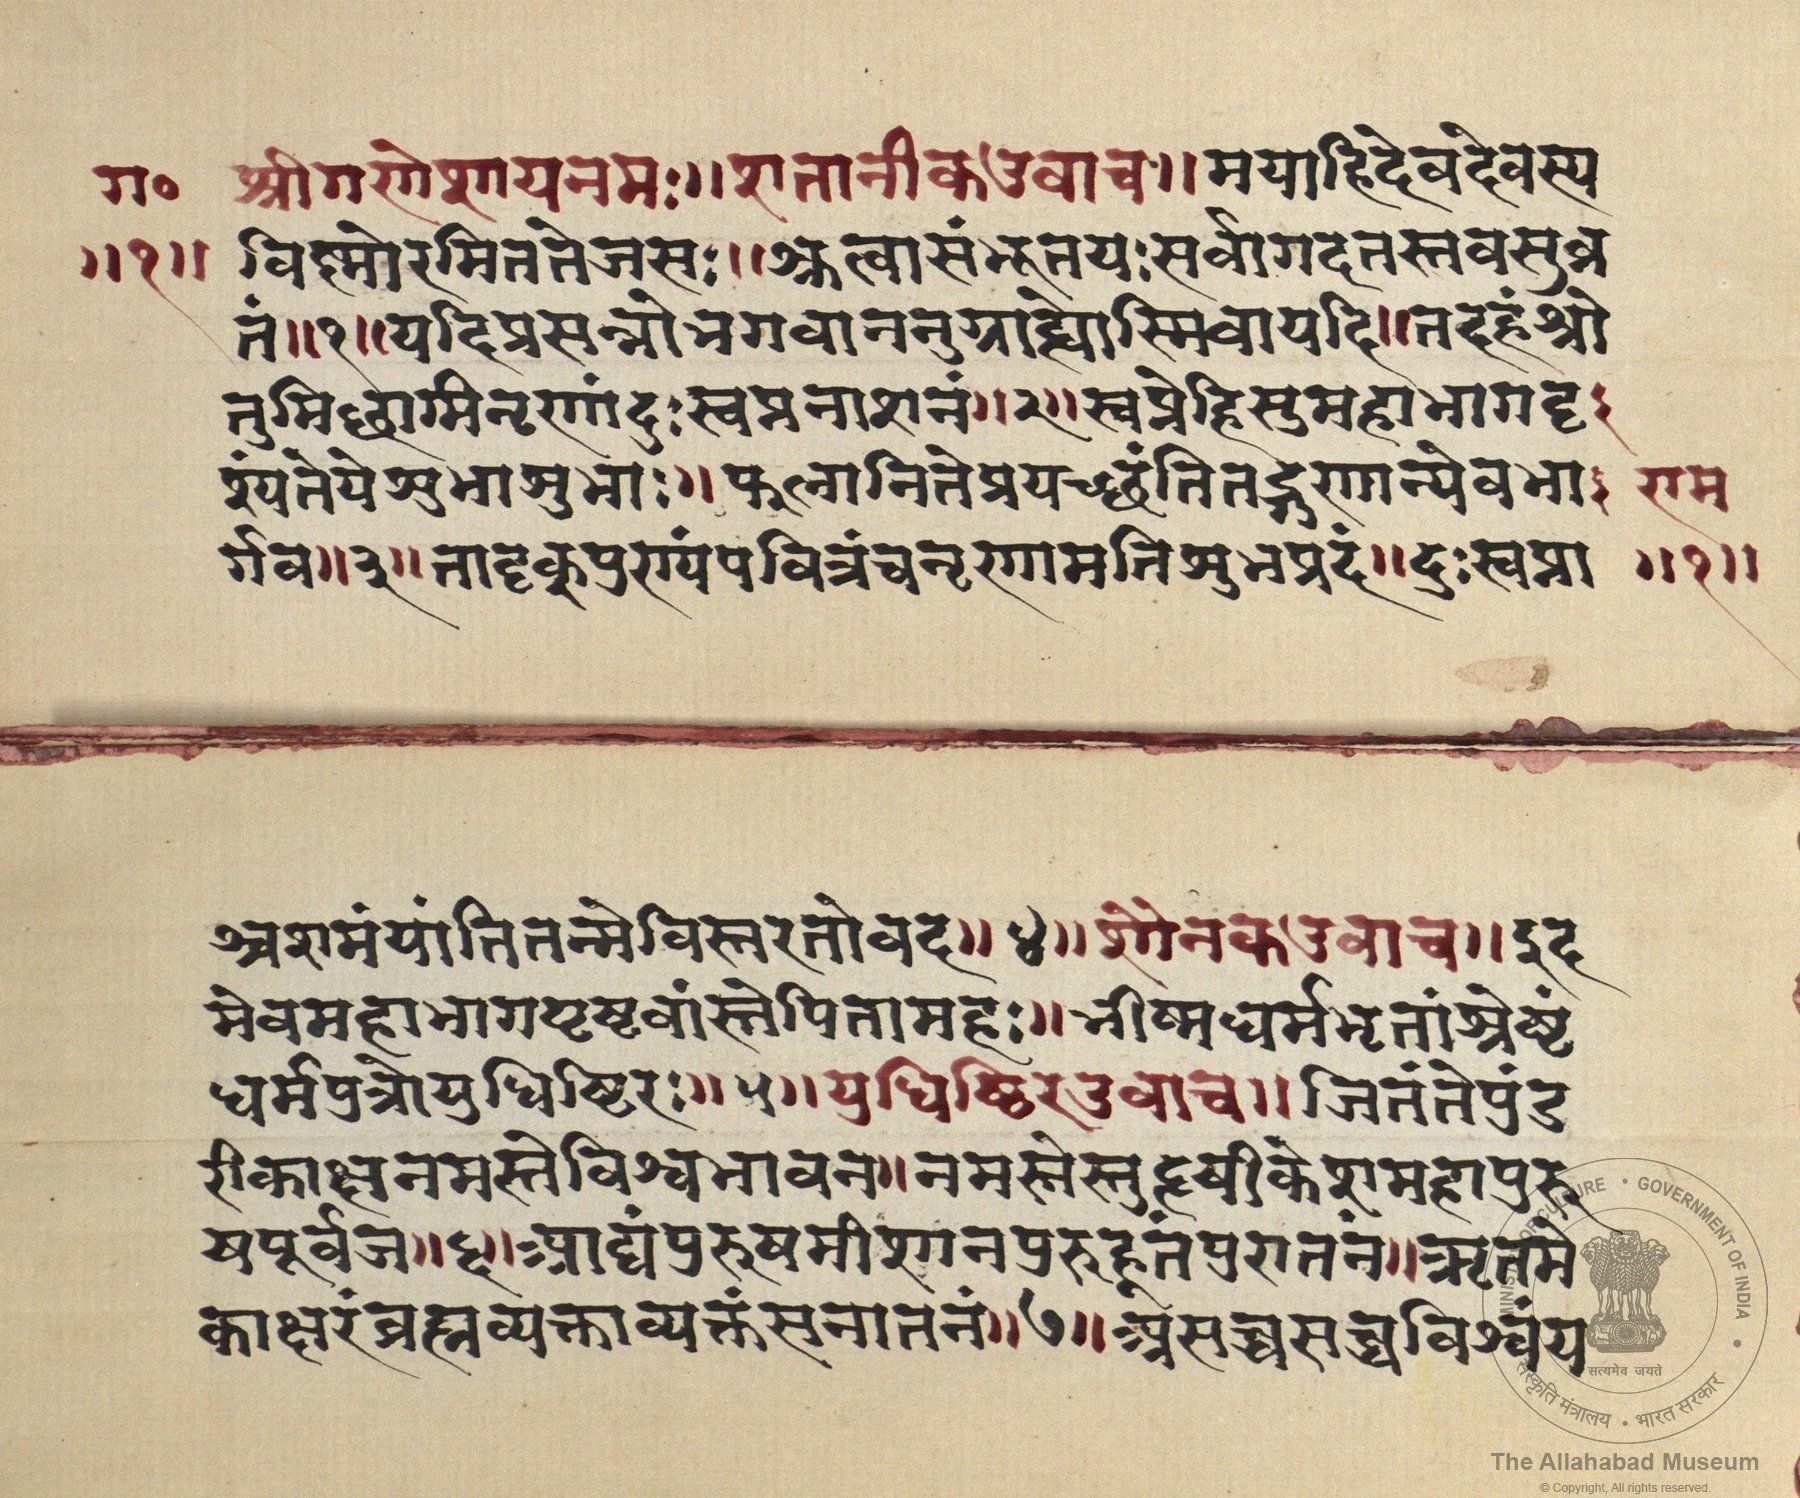 ग० श्रीगणेशायनमः॥शतानीकउवाच॥मयाहिदेवदेवस्य
॥१॥ विष्णोरमिततेजसः॥श्रुत्वासंभूतयःसर्वागदतस्तवसुव्र
तं॥१॥यदिप्रसन्नोभगवाननुग्राह्योस्मिवायदि॥तदहंश्रो
तुमिछामिनृणांदुःस्वप्ननाशनं॥२॥स्वप्नेहिसुमहाभागदृ
श्यंतेयेशुभाशुभाः॥फलानितेप्रयच्छंतितद्गुणान्येवभा राम
र्गव॥३॥तादृक्पुण्यंपवित्रंचनृणामतिशुभप्रदं॥दुःस्वप्ना ॥१॥
श्चशमंयांतितन्मेविस्तरतोवद॥४॥शौनकउवाच॥इद
मेवमहाभागपृष्टवांस्तेपितामहः॥भीष्मधर्मभृतांश्रेष्टं
धर्मपुत्रोयुधिष्टिरः॥५॥युधिष्ठिरउवाच॥जितंतेपुंड
रीकाक्षनमस्तेविश्वभावन॥नमस्तेस्तुहृषीकेशमहापुरु
षपूर्वज॥६॥आद्यंपुरुषमीशानपुरुहूतंपुरातनं॥ऋतमे
काक्षरंब्रह्मव्यक्ताव्यक्तंसनातनं॥७॥असच्चसच्चविश्वंय
MINISTRY OF CULTURE • GOVERNMENT OF INDIA •
सत्यमेव जयते
संस्कृति मंत्रालय • भारत सरकार
The Allahabad Museum
© Copyright, All rights reserved.